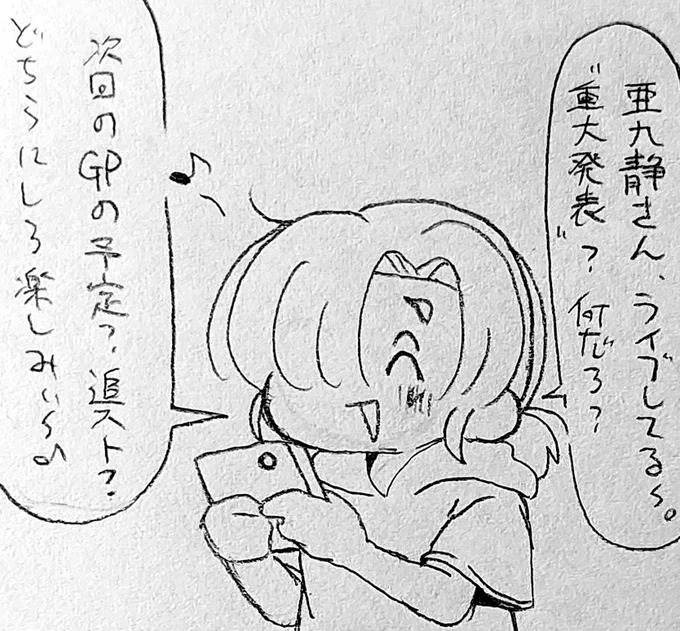 亜九静さん、ライブしてる〜。
"重大発表"？何だろ？
次回のGPの予定？追スト？
どちらにしろ楽しみぃ〜♪